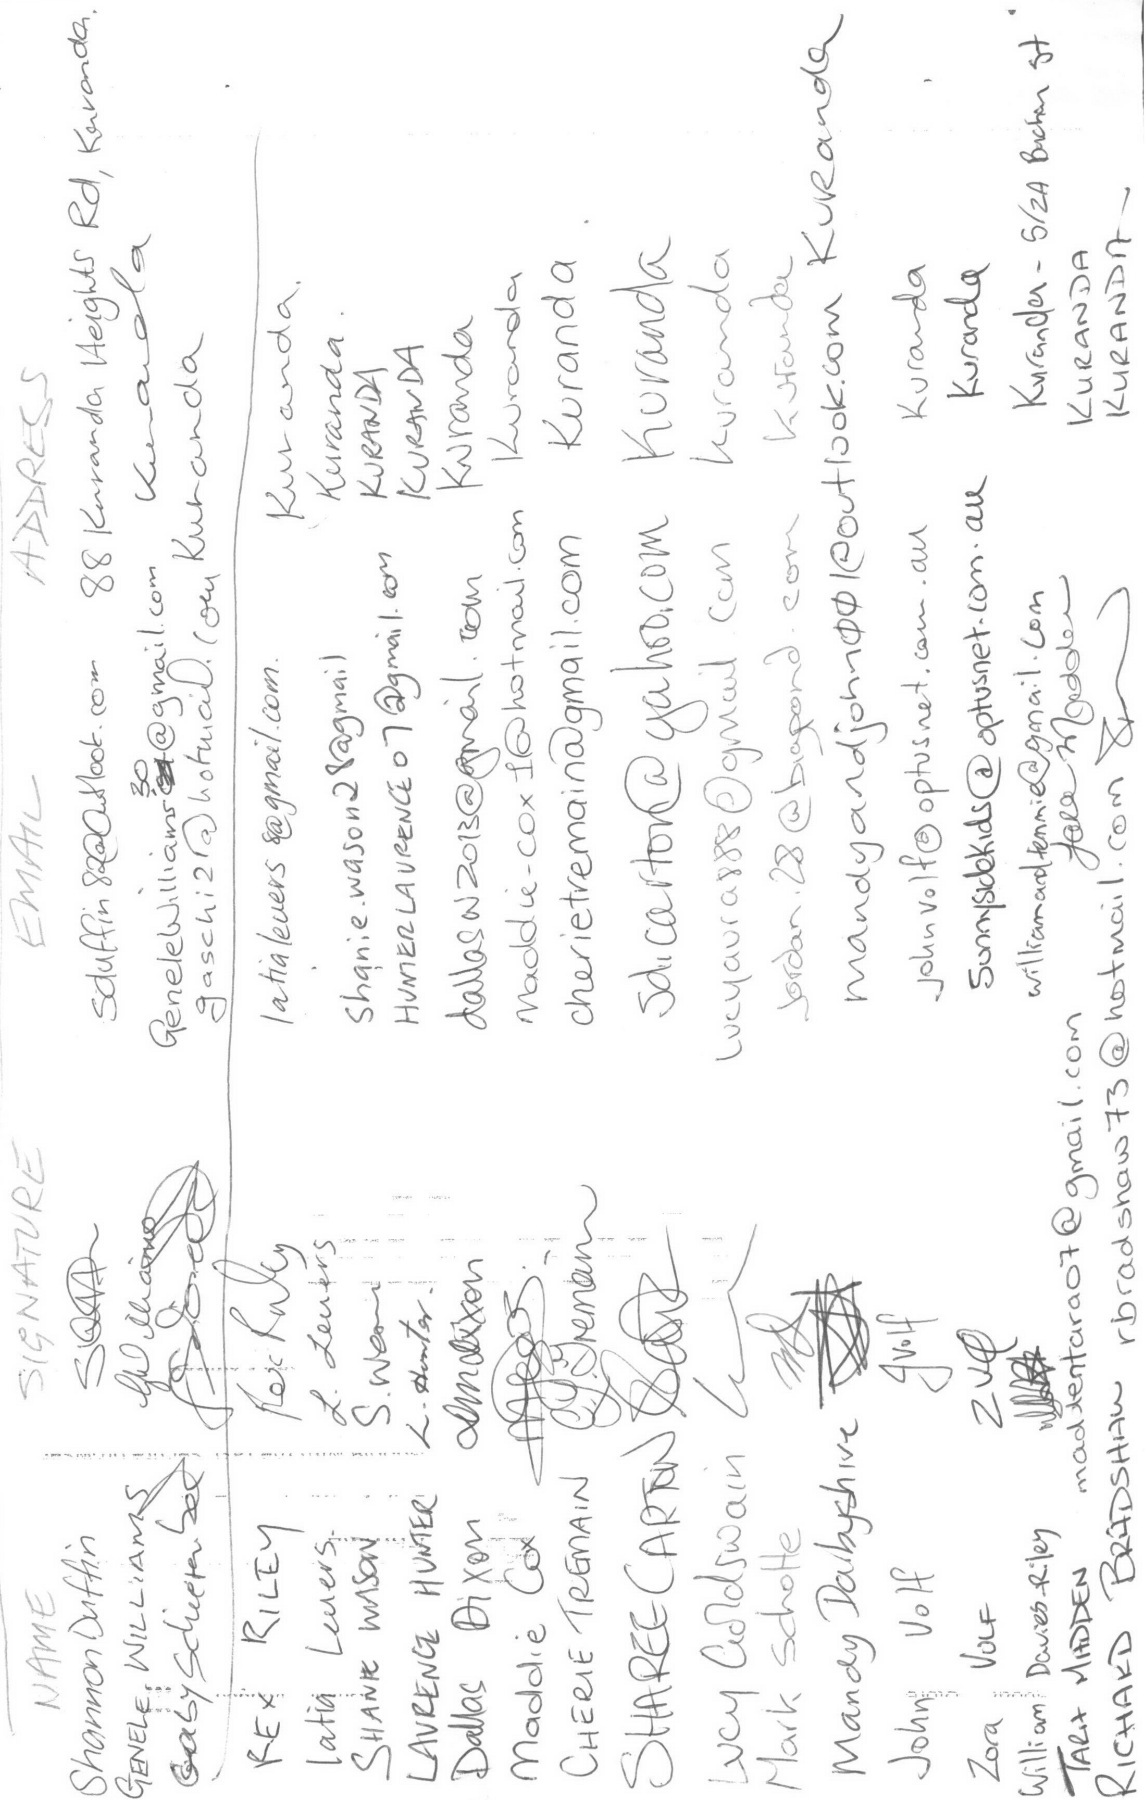 NAME SIGNATURE EMAIL ADDRESS
Shannon Duffin sduffin82@outlook.com 88 Kuranda Heights Rd, Kuranda.
GENELE WILLIAMS GWilliams Genelewilliams30@gmail.com Kuranda
Gaby gaschi2@hotmail.com Kuranda
REX RILEY Rex Riley Kuranda.
Latia Levers. L. Levers latialevers8@gmail.com. Kuranda.
SHANIE WASON S. Wason Shanie.wason28@gmail KURANDA
LAURENCE HUNTER L. Hunter. HUNTERLAURENCE07@gmail.com KURANDA
Dallas Dixon dallasw2013@gmail.com Kuranda
Maddie Cox maddie-cox1@hotmail.com Kuranda
CHERIE TREMAIN Tremain cherietremain@gmail.com Kuranda.
SHAREE CARTON sdicarton@yahoo.com Kuranda
Lucy Goldswain lucyaura888@gmail.com Kuranda
Mark Scholte jordan.28@bigpond.com Kuranda
Mandy Dalbyshire mandyandjohn001@outlook.com Kuranda
John Volf JVolf johnvolf@optusnet.com.au Kuranda
Zora VOLF ZVolf Sunnysidekids@optusnet.com.au Kuranda
William Davies-Riley williamandtemmie@gmail.com Kuranda - 5/24 Barhon st
TARA MADDEN maddentara07@gmail.com Madden KURANDA
RICHARD BRADSHAW rbradshaw73@hotmail.com KURANDA